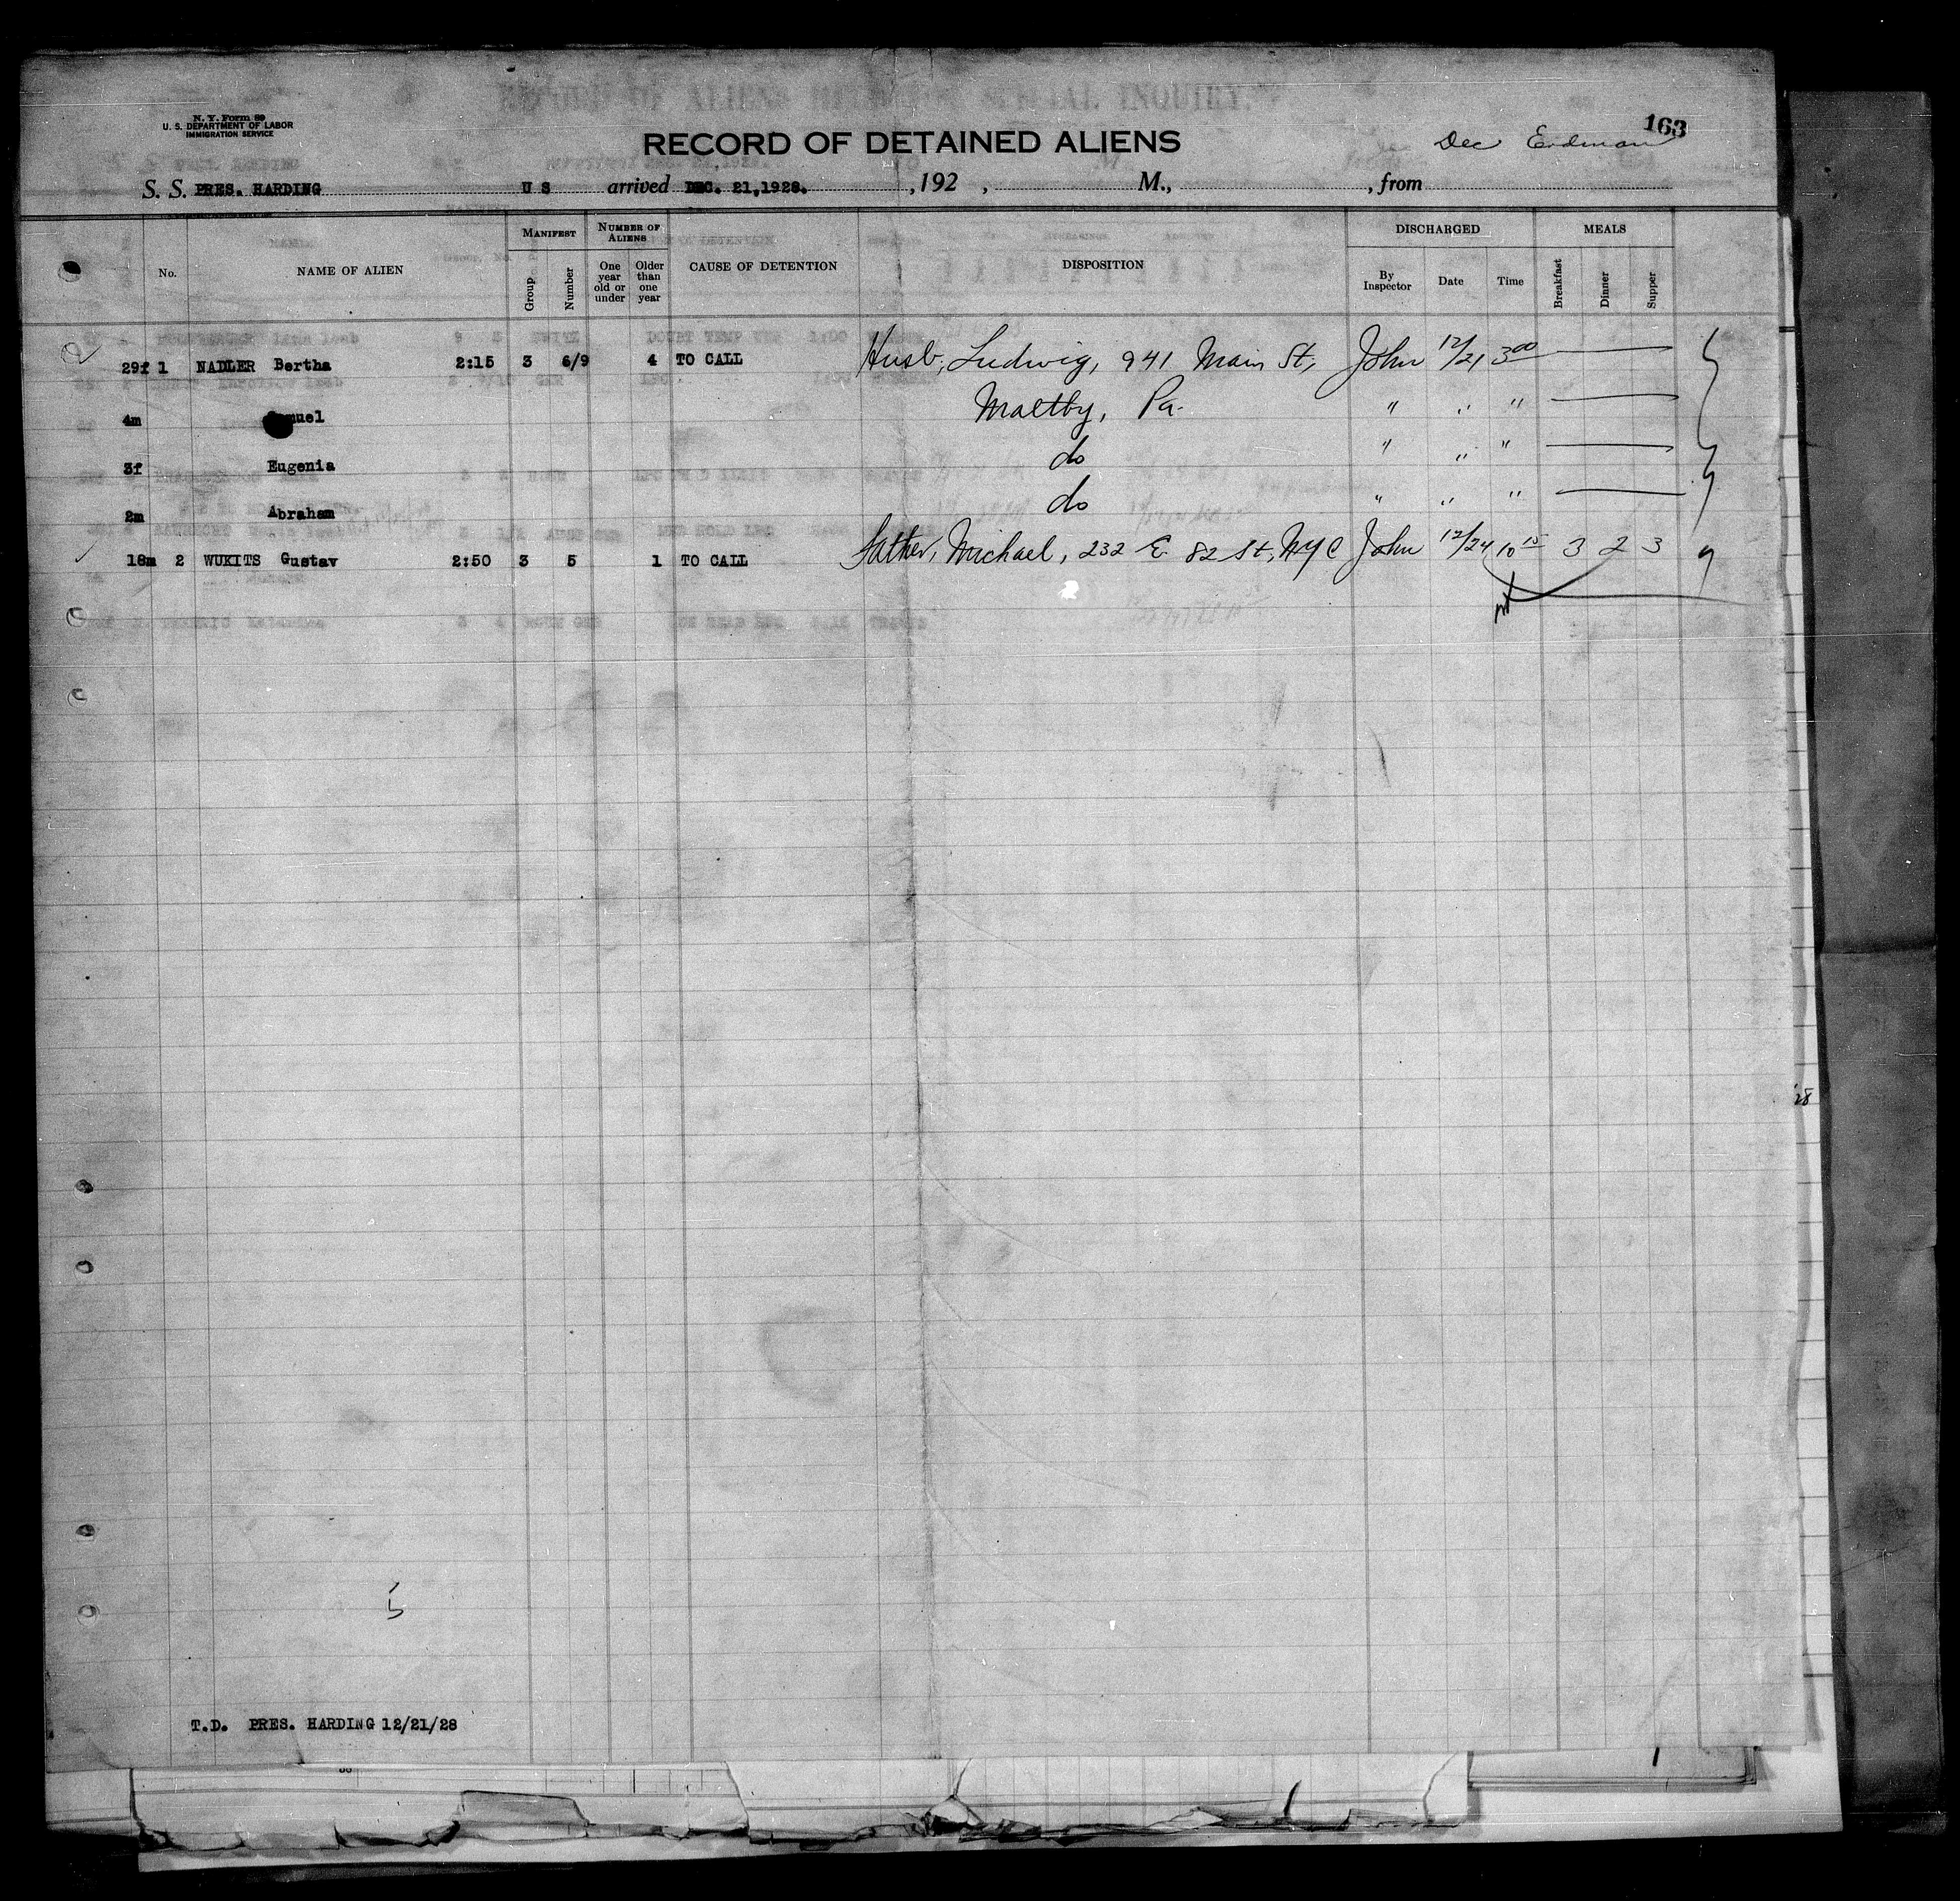 163
N. Y. Form 89
U. S. DEPARTMENT OF LABOR
IMMIGRATION SERVICE
RECORD OF DETAINED ALIENS
Dec Erdman
S. S. PRES. HARDING U S arrived DEC. 21,1928. ,192 , M., , from
No. NAME OF ALIEN MANIFEST Group Number NUMBER OF ALIENS One year old or under Older than one year CAUSE OF DETENTION DISPOSITION DISCHARGED By Inspector Date Time MEALS Breakfast Dinner Supper
29f 1 NADLER Bertha 2:15 3 6/9 4 TO CALL Husb, Ludwig, 941 Main St, John 12/21 3 00
4m muel Maltby, Pa. " " "
3f Eugenia do " " "
2m Abraham do " " "
18m 2 WUKITS Gustav 2:50 3 5 1 TO CALL Father, Michael, 232 E. 82 St, NYC John 12/24 10 15 3 2 3
'28
5
T.D. PRES. HARDING 12/21/28